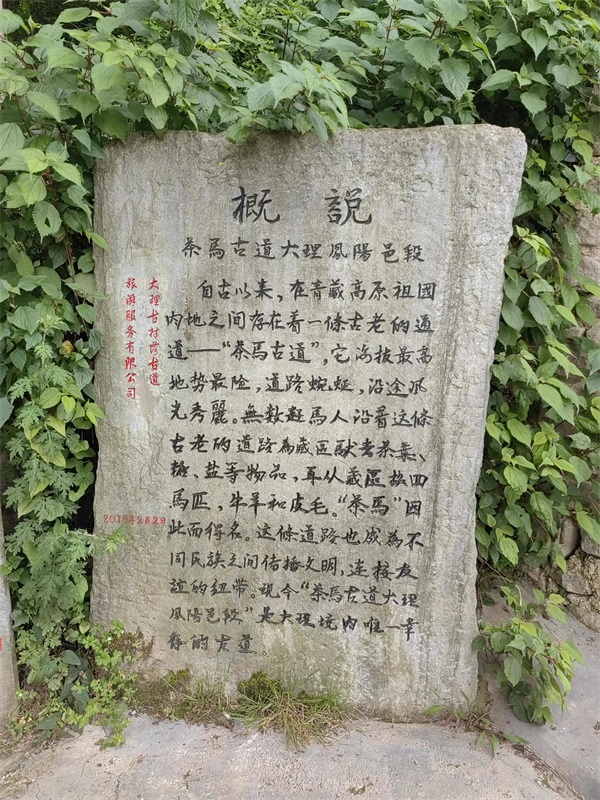 概 説
茶馬古道大理鳳陽邑段
自古以来，在青藏高原祖国
内地之间存在着一條古老的通
道——“茶馬古道”。它海拔最高
地势最险，道路蜿蜒，沿途风
光秀麗。無数赶馬人沿着这條
古老的道路為藏區馱去茶葉、
糖、盐等物品，再从藏區换回
馬匹，牛羊和皮毛。“茶馬”因
此而得名。这條道路也成為不
同民族之间传播文明，连接友
谊的纽带。现今“茶馬古道大理
鳳陽邑段”是大理境内唯一幸
存的古道
大理古村落古道
旅游服务有限公司
2015年2月2日